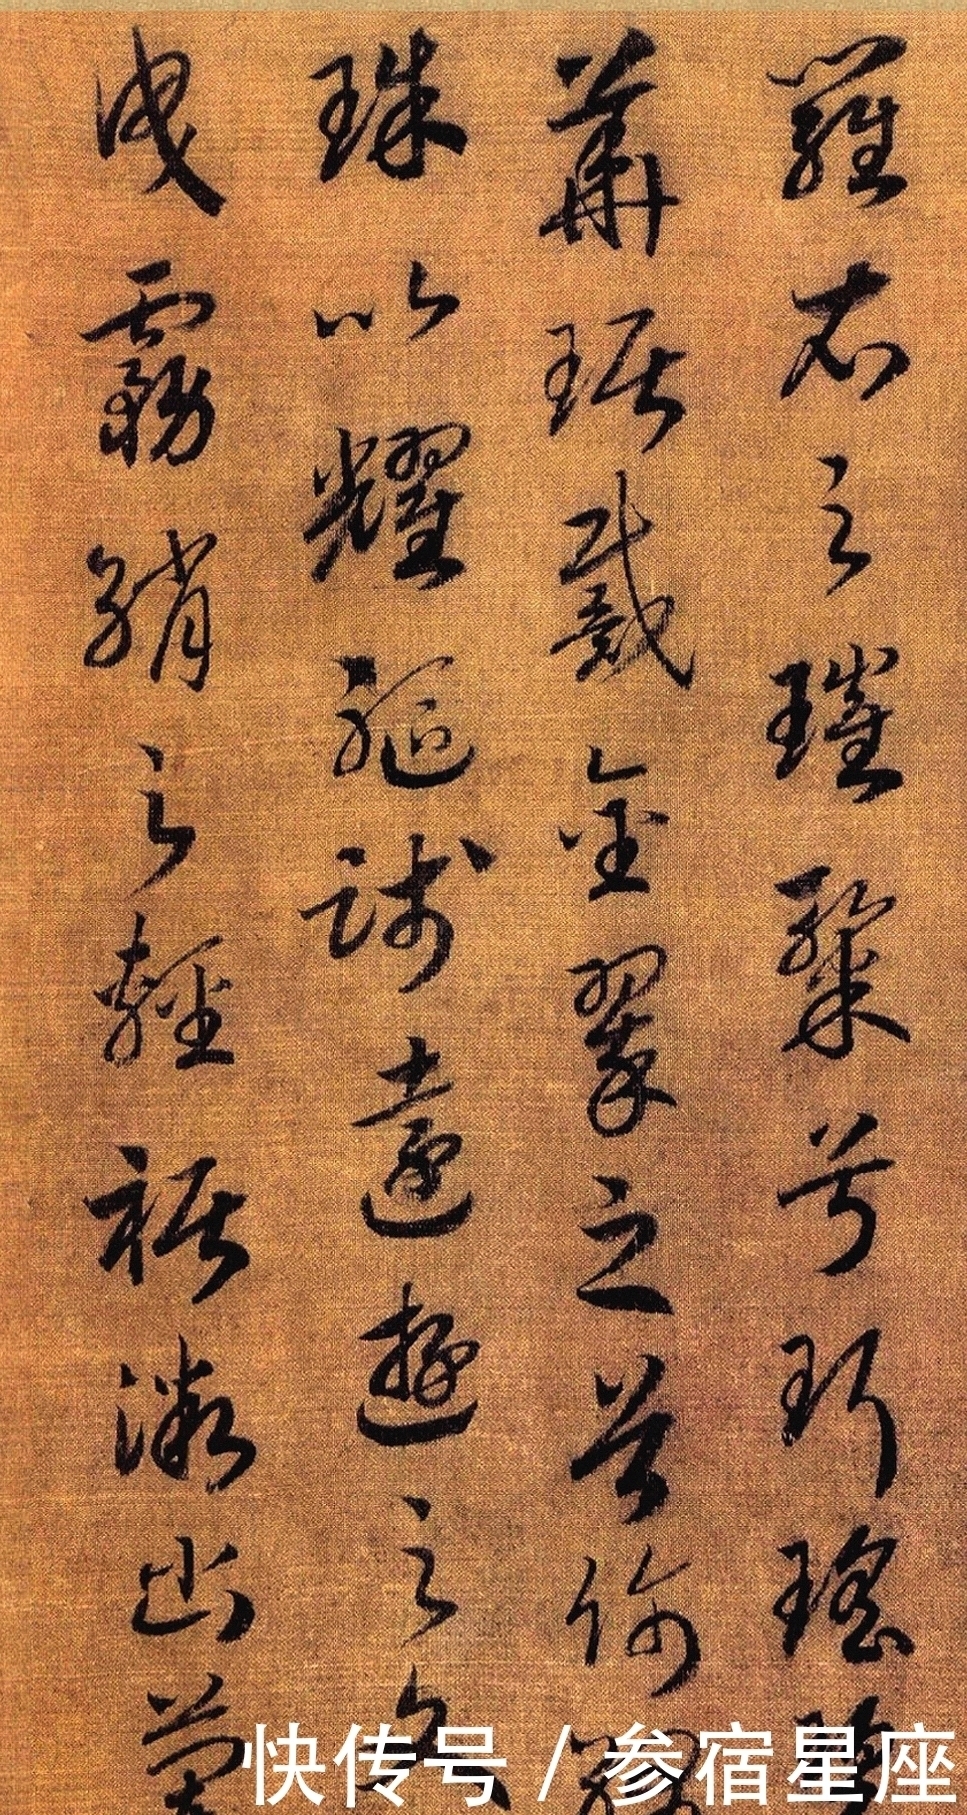 羅衣之璀粲兮珥瑤
華琚戴金翠之首飾
珠以耀軀踐遠遊之文
曳霧綃之輕裾微幽蘭
快传号 / 参宿星座